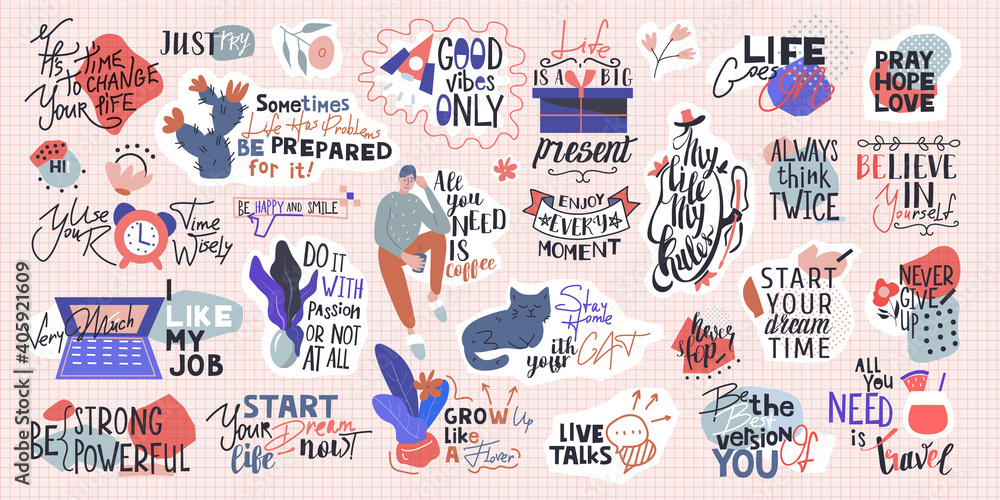 It's TIME
TO CHANGE
YOUR LIFE
JUST TRY
Sometimes
Life Has Problems
BE PREPARED
for it!
GOOD
vibes
ONLY
Life
IS A BIG
present
LIFE
Goes ON
PRAY
HOPE
LOVE
HI
Use
YouR
Time
Wisely
BE HAPPY AND SMILE
All
you
NEED
IS
Coffee
ENJOY
EVERY
MOMENT
My
life
My
Rules
ALWAYS
think
TWICE
BELIEVE
IN
Yourself
Very Much
I
LIKE
MY
JOB
DO IT
WITH
PASSION
OR NOT
AT ALL
Stay
Home
with
your CAT
Never
stop
START
YOUR
dream
TIME
NEVER
GIVE
UP
BE
STRONG
POWERFUL
START
Your Dream
life now!
GROW Up
Like
A Flover
LIVE
TALKS
Be the
Best
version OF
YOU
ALL
You
NEED
is
Travel
Adobe Stock | #405921609
Adobe Stock